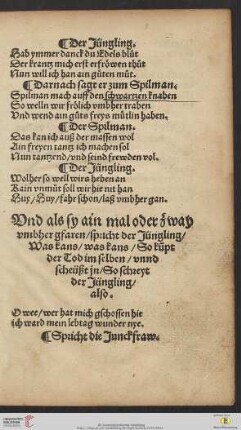 ¶Der Jüngling.
Hab ymmer danck du Edels blůt
Der krantz mich erst erfröwen thůt
Nun will ich han ain gůten můt.
¶Darnach sagt er zum Spilman.
Spilman mach auff den schwartzen knaben
So welln wir frölich vmbher traben
Vnd wend ain gůts freys můtlin haben.
¶Der Spilman.
Das kan ich auß der massen wol
Ain freyen tantz ich machen sol
Nun tantzend/vnd seind frewden vol.
¶Der Jüngling.
Wolher so well wirs heben an
Kain vnmůt soll wir hie nit han
Huy/Huy/fahr schon/laß vmbher gan.
Vnd als sy ain mal oder zway
vmbher gfaren/spricht der Jüngling/
Was kans/was kans/So kůpt
der Tod im selben/vnnd
scheüßt jn/So schreyt
der Jüngling/
also.
O wee/wer hat mich gschossen hie
ich ward mein lebtag wunder nye.
¶Spricht die Junckfraw.